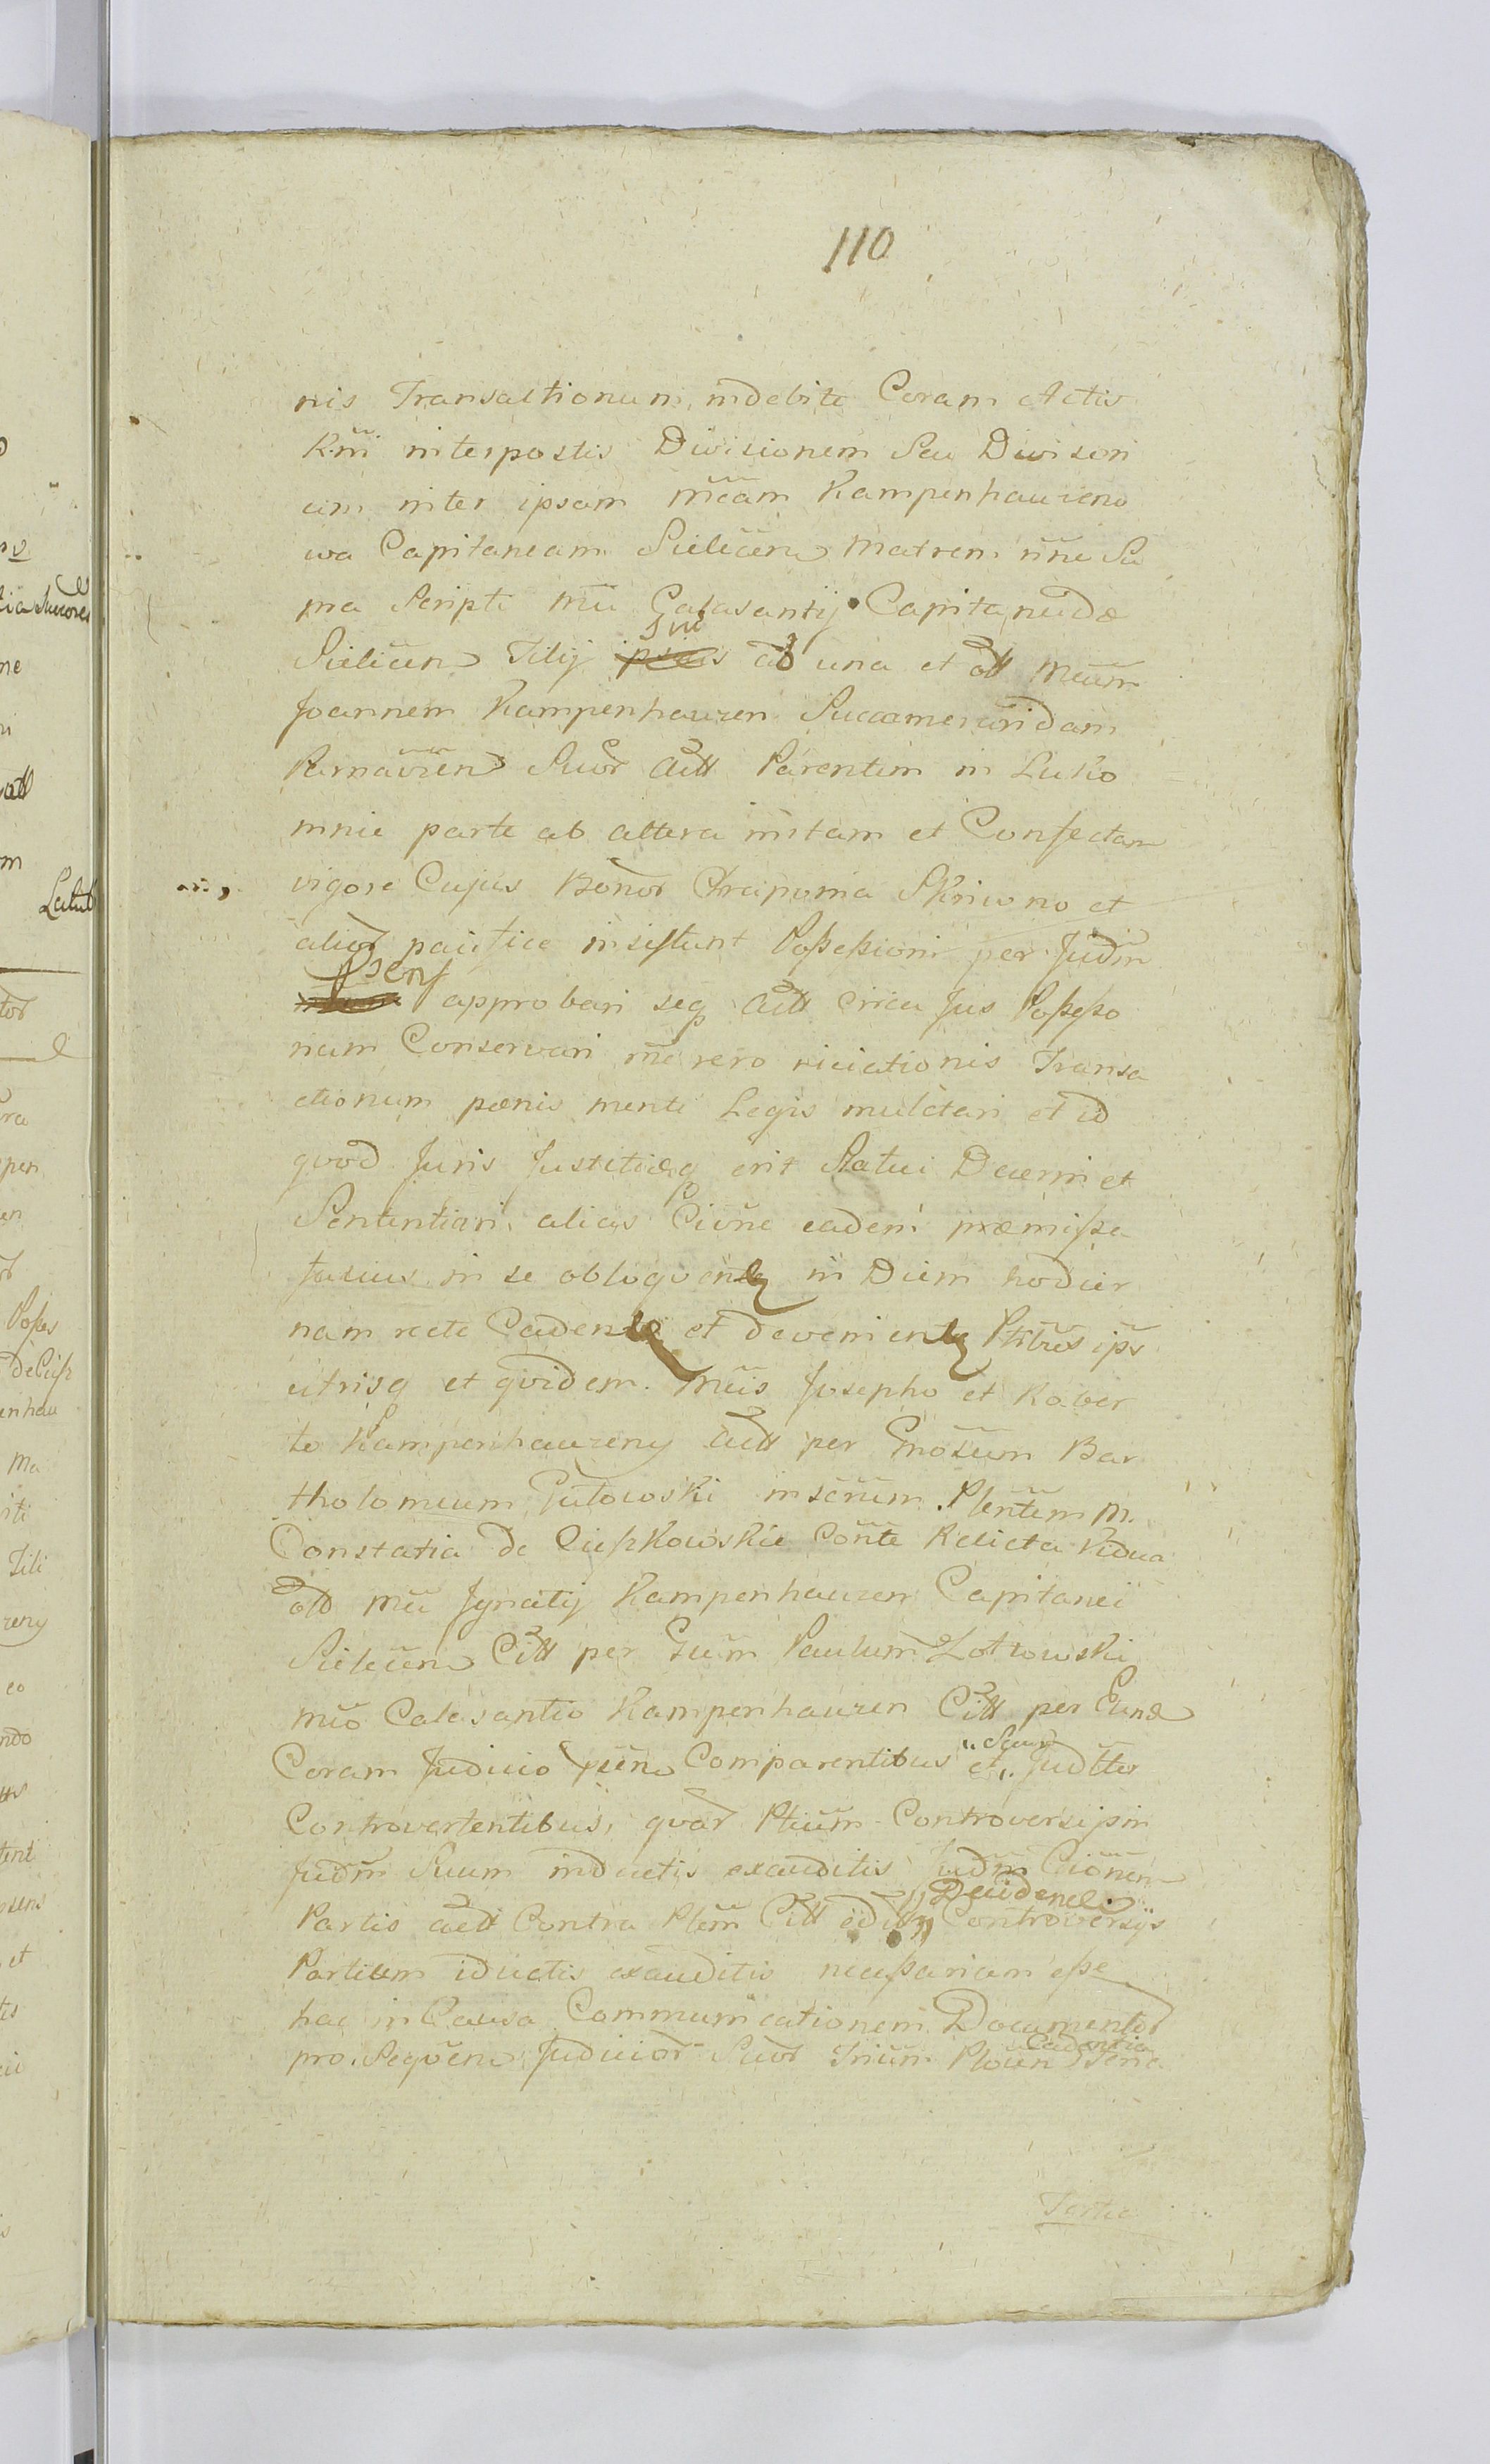 110
nis Transactionum, indebite Coram Actis
interpostis Divisionem Seu Divisori
um inter ipsam Mcam Kampenhauzeno
wa Capitaneam Sielicen Matrem nne Su
pra Scripti Mci Galasantij Capitanidæ
Sielicen Filij sui ab una et olt Mcum
Joannem Kampenhauzen Succameraridam
Parnavien Suor Actt Parentem in Luko
mnie parte ab altera initam et Confectam
vigore Cujus Bonor Skriwno et
alior pacifice insistunt Poßeßioni per Judm
psens approbari seq Actt Circa Jus Poßeßo
rium Conservari vero viciationis Transa
ctionum pœnis mente Legis mulctari et id
qvod Juris Justitiæq erit Statui Decerni et
Sententiari, alias Cione eadem præmißa
fusius in se obloqvente in Diem hodier
nam recte Cadente et deveniente Ptbus ips
utrisq et qvidem. Mcis Josepho et Rober
to Kampenhauzeny Actt per Gnosum Bar
tholomeum Gutowski inscrum. Plentem M.
Constatia de Ciepßkowskie Conte Relicta Vidua
olt Mci Jgnatij Kampenhauzen Capitanei
Sielicen Citt per Gum Paulum Zotowski
Mco Calasantio Kampenhauzen Citt per Eund
Coram Judicio psen Comparentibus et Judtter
Controvertentibus, qvar Ptium Controversijs in
Judm Suum inductis exauditis Judm Cionem
Deciden
Partis Actt Contra Ptem Citt editt Controversijs
Partium iductis exauditis neceßarium eße
hac in Causa Communicationem Documentor
Cadentia
pro Seqven Judicior Suor Trium Ploien Feria
Tertia